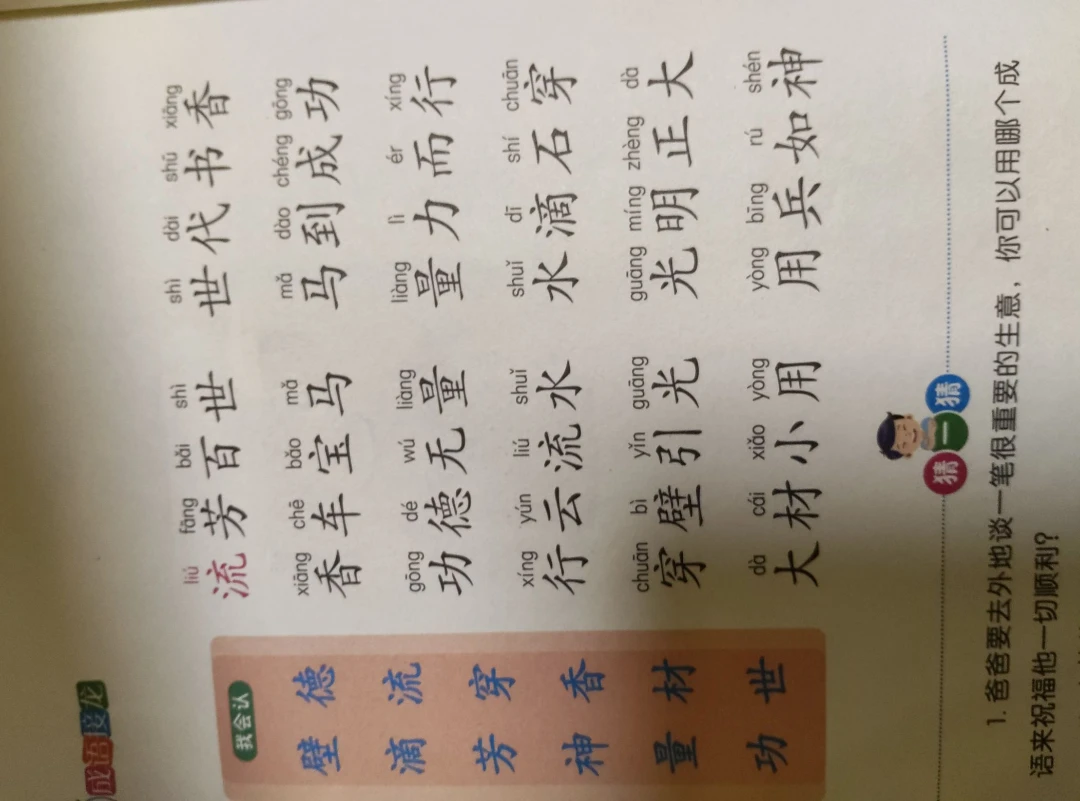 成语接龙
我会认
壁 德
滴 流
芳 穿
神 香
量 材
功 世
liú fāng bǎi shì shì dài shū xiāng
流芳百世 世代书香
xiāng chē bǎo mǎ mǎ dào chéng gōng
香车宝马 马到成功
gōng dé wú liàng liàng lì ér xíng
功德无量 量力而行
xíng yún liú shuǐ shuǐ dī shí chuān
行云流水 水滴石穿
chuān bì yǐn guāng guāng míng zhèng dà
穿壁引光 光明正大
dà cái xiǎo yòng yòng bīng rú shén
大材小用 用兵如神
猜一猜
1. 爸爸要去外地谈一笔很重要的生意，你可以用哪个成
语来祝福他一切顺利？